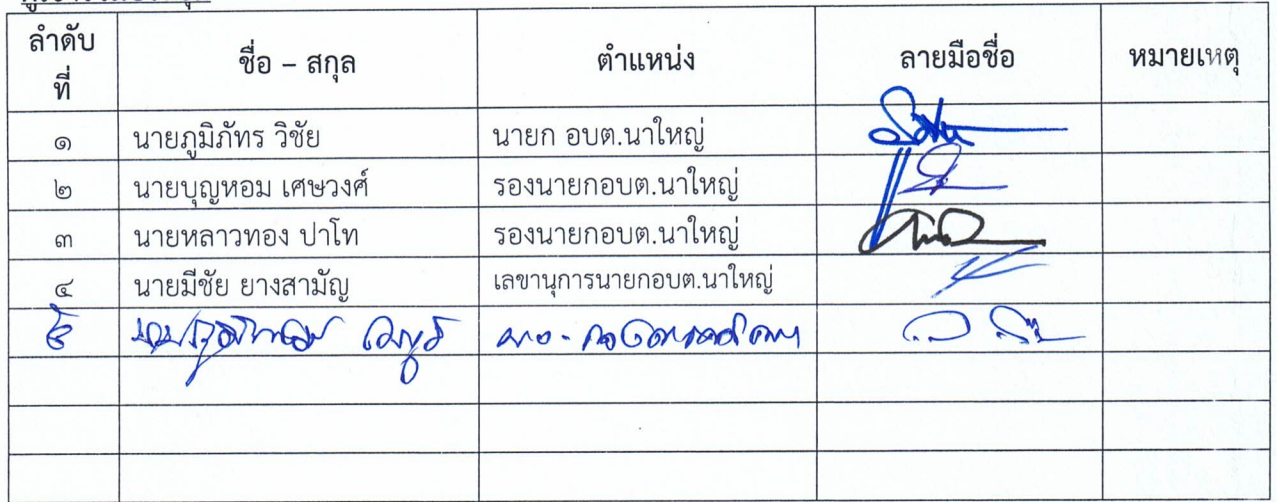 ลำดับ
ที่
ชื่อ – สกุล ตำแหน่ง ลายมือชื่อ หมายเหตุ
๑ นายภูมิภัทร วิชัย นายก อบต.นาใหญ่
๒ นายบุญหอม เศษวงศ์ รองนายกอบต.นาใหญ่
๓ นายหลาวทอง ปาโท รองนายกอบต.นาใหญ่
๔ นายมีชัย ยางสามัญ เลขานุการนายกอบต.นาใหญ่
๕